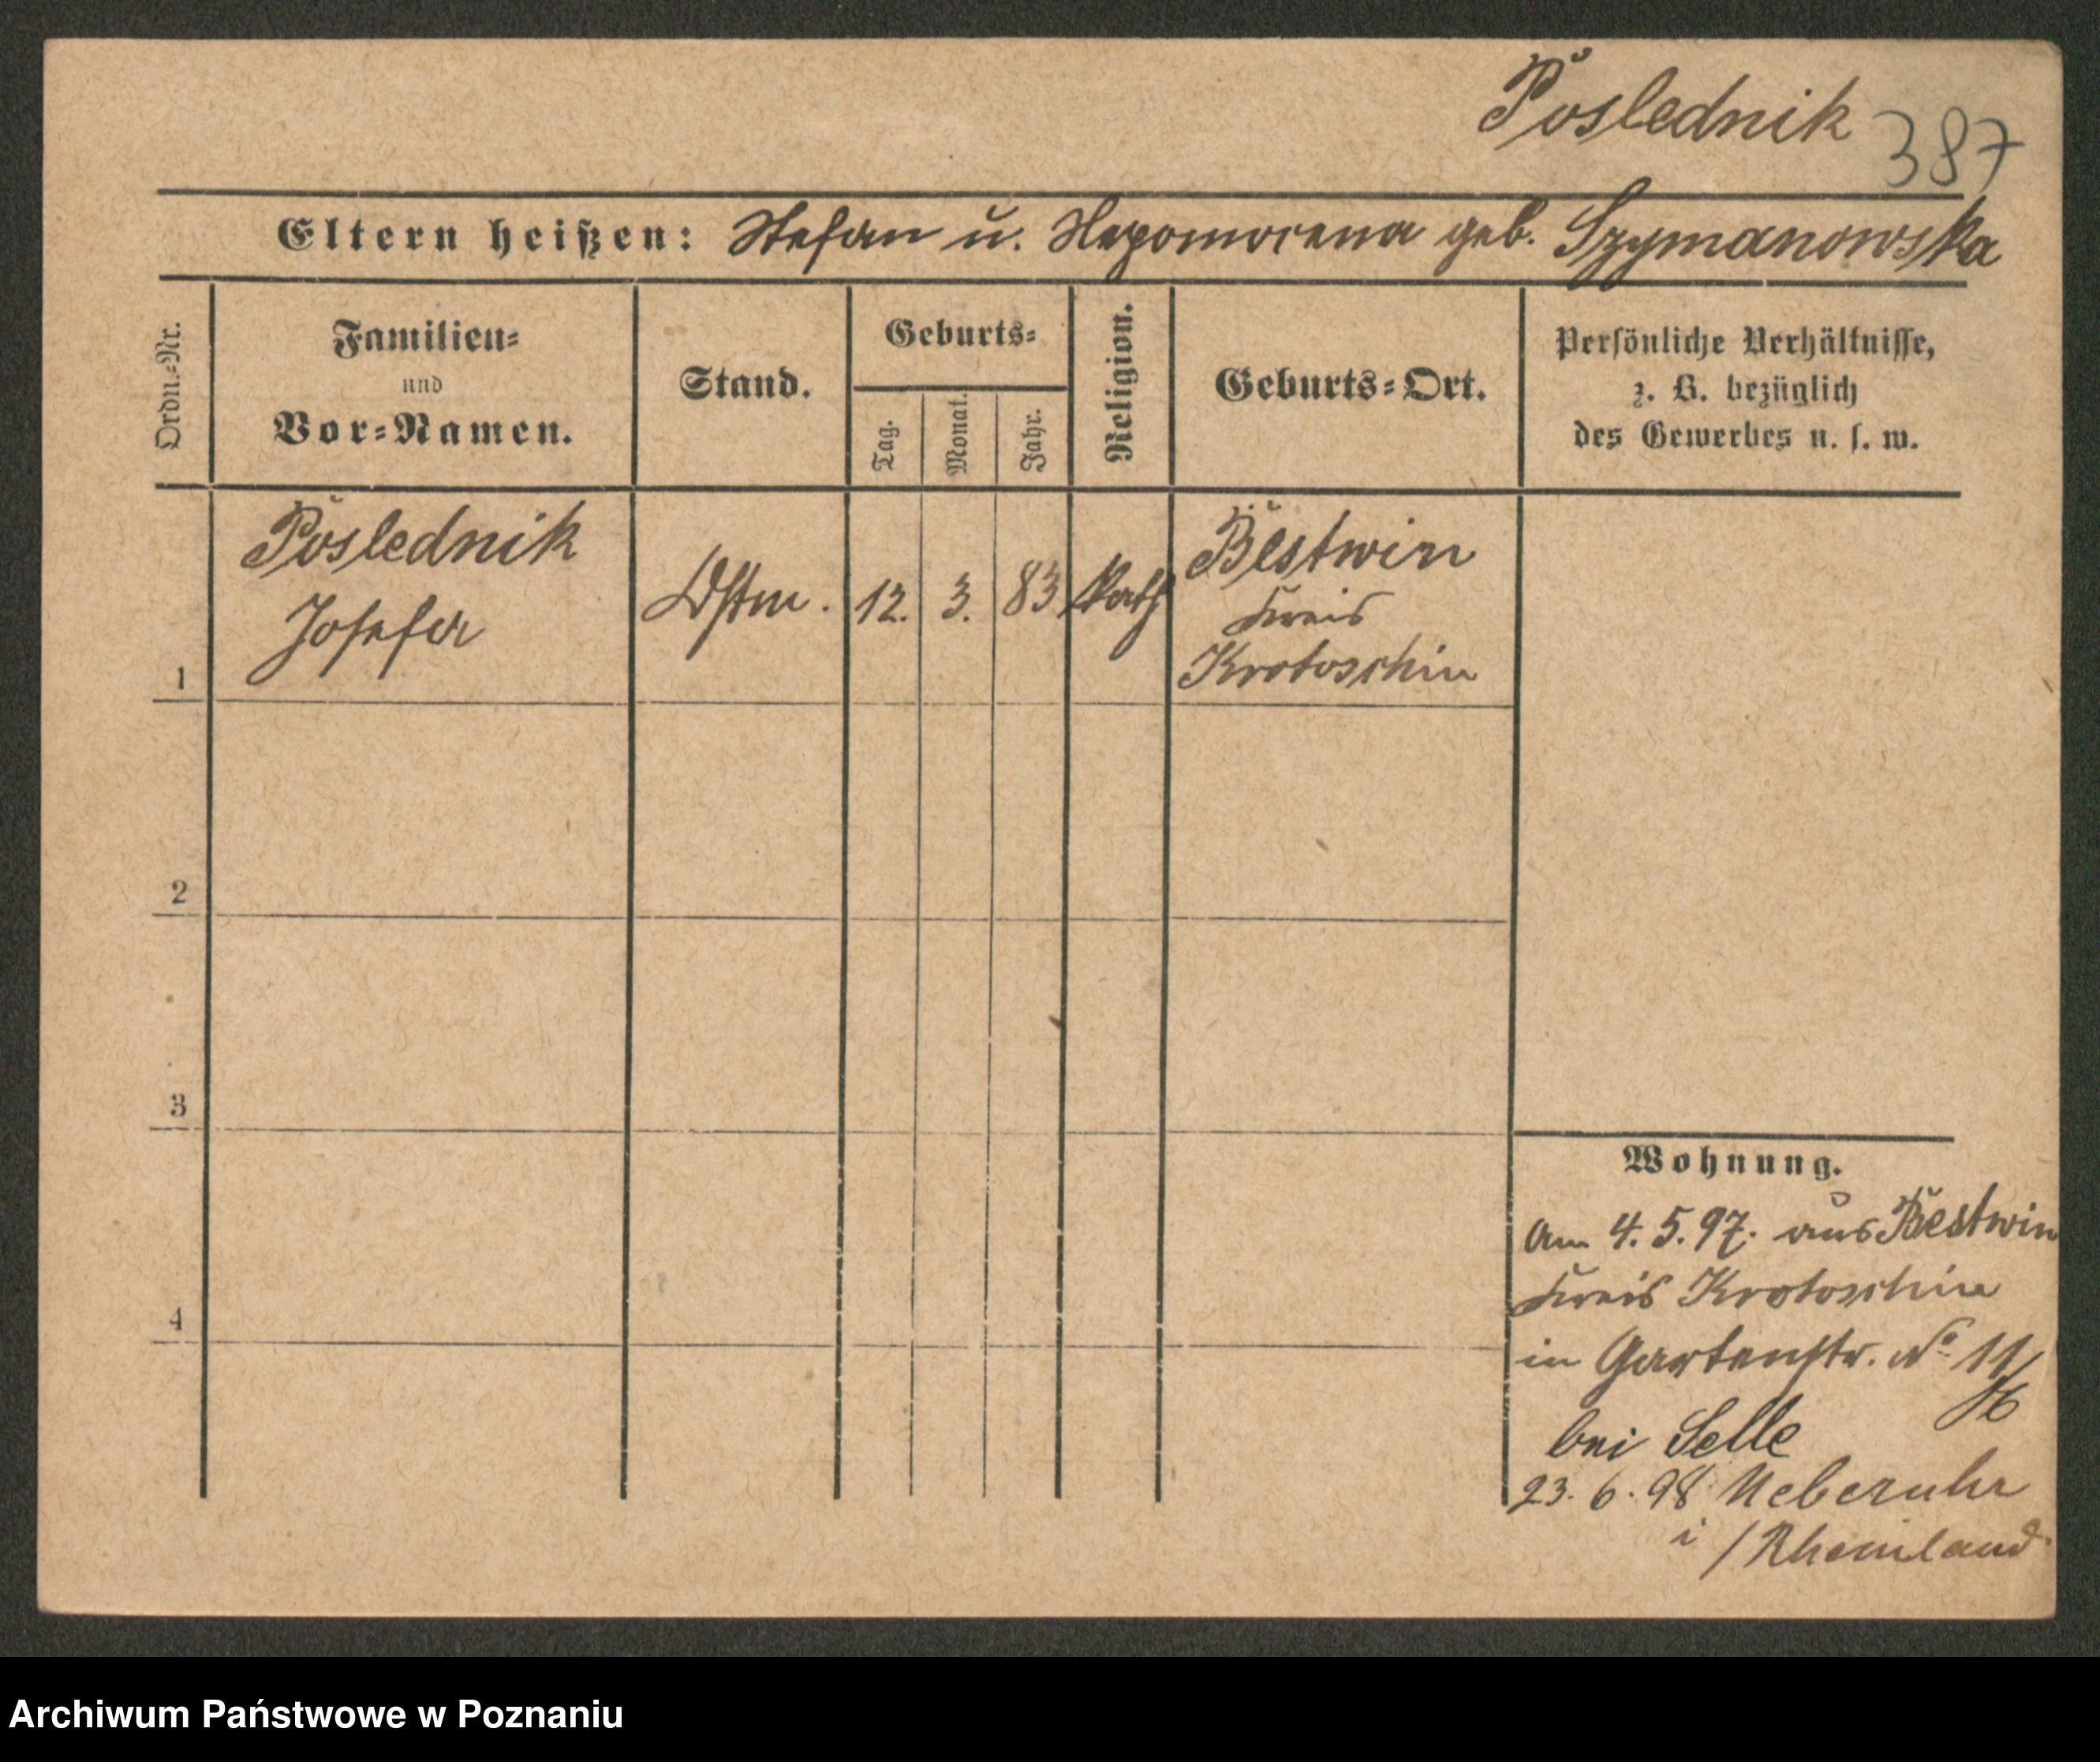 Poslednik 387
Eltern heißen: Stefan u. Nepomocena geb. Szymanowska
Ordn.-Nr.
Familien-
und
Vor-Namen.
Stand.
Geburts-
Tag.
Monat.
Jahr.
Religion.
Geburts-Ort.
Persönliche Verhältnisse,
z. B. bezüglich
des Gewerbes u. s. w.
1
Poslednik
Josefa
Dstm.
12.
3.
83
kath
Bestwin
Kreis
Krotoschin
2
3
4
Wohnung.
Am 4.5.97. aus Bestwin
Kreis Krotoschin
in Gartenstr. No 11/
bei Selle
23.6.98 Ueberuhr
i/Rheinland
Archiwum Państwowe w Poznaniu